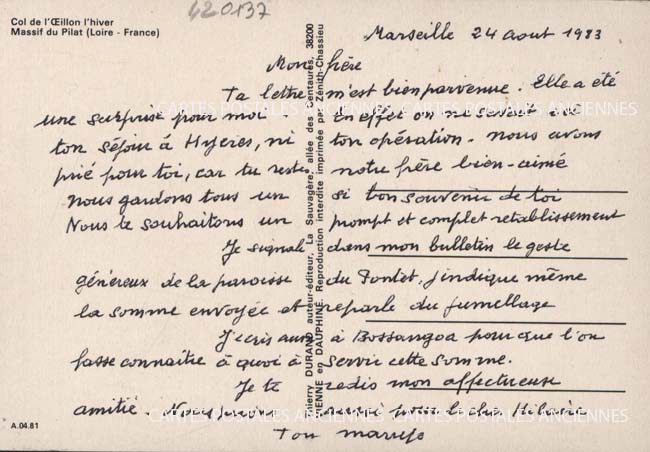 420137
Col de l'Œillon l'hiver
Massif du Pilat (Loire - France)
Marseille 24 août 1983
Mon frère
Ta lettre m'est bien parvenue. Elle a été
une surprise pour moi. En effet on ne savait ni
ton séjour à Hyères, ni ton opération. Nous avons
prié pour toi, car tu restes notre frère bien-aimé
Nous gardons tous un si bon souvenir de toi
Nous te souhaitons un prompt et complet rétablissement
Je signale dans mon bulletin le geste
généreux de la paroisse du Pontet, j'indique même
la somme envoyée et reparle du jumellage
J'écris aussi à Bossangoa pour que l'on
fasse connaître à quoi a servir cette somme.
Je te redis mon affectueuse
amitié. Nous prions aussi pour le cher Hilaire
Ton
A.04.81
Thierry DURAND auteur-éditeur, La Sauvagère, allée des Centaures, 38200
VIENNE en DAUPHINÉ Reproduction interdite imprimée par Zénith-Chassieu
CARTES POSTALES ANCIENNES CARTES POSTALES ANCIENNES
CARTES POSTALES ANCIENNES CARTES POSTALES ANCIENNES